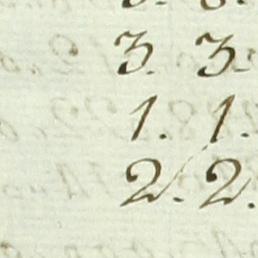 3. 3.
1. 1.
2. 2.